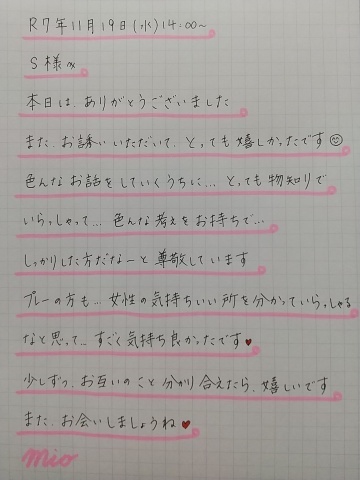 R7年11月19日(水)14:00~
S様
本日は、ありがとうございました
また、お誘いいただいて、とっても嬉しかったです
色んなお話をしていくうちに…とっても物知りで
いらっしゃって…色んな考えをお持ちで…
しっかりした方だなーと尊敬しています
プレーの方も…女性の気持ちいい所を分かっていらっしゃる
なと思って…すごく気持ち良かったです♥
少しずつ、お互いのこと分かり合えたら、嬉しいです
また、お会いしましょうね♥
Mio